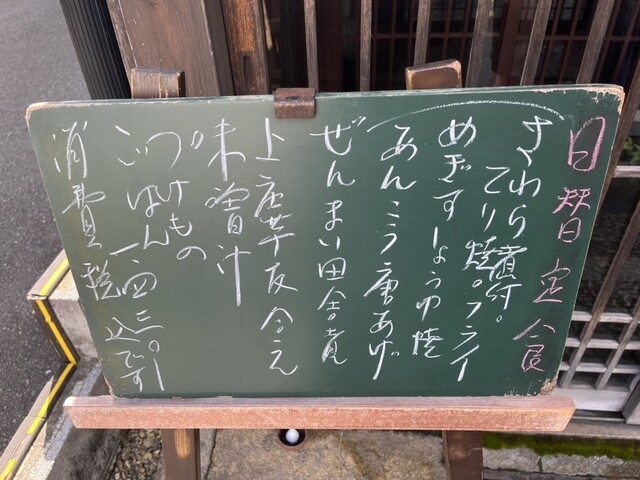 日替定食
さわら煮付。
てり焼。フライ
めぎすしょうゆ焼
あんこう唐あげ
ぜんまい田舎煮
上庄芋友合え
味噌汁
つけもの
ごはん 一、四三〇
消費税込です!